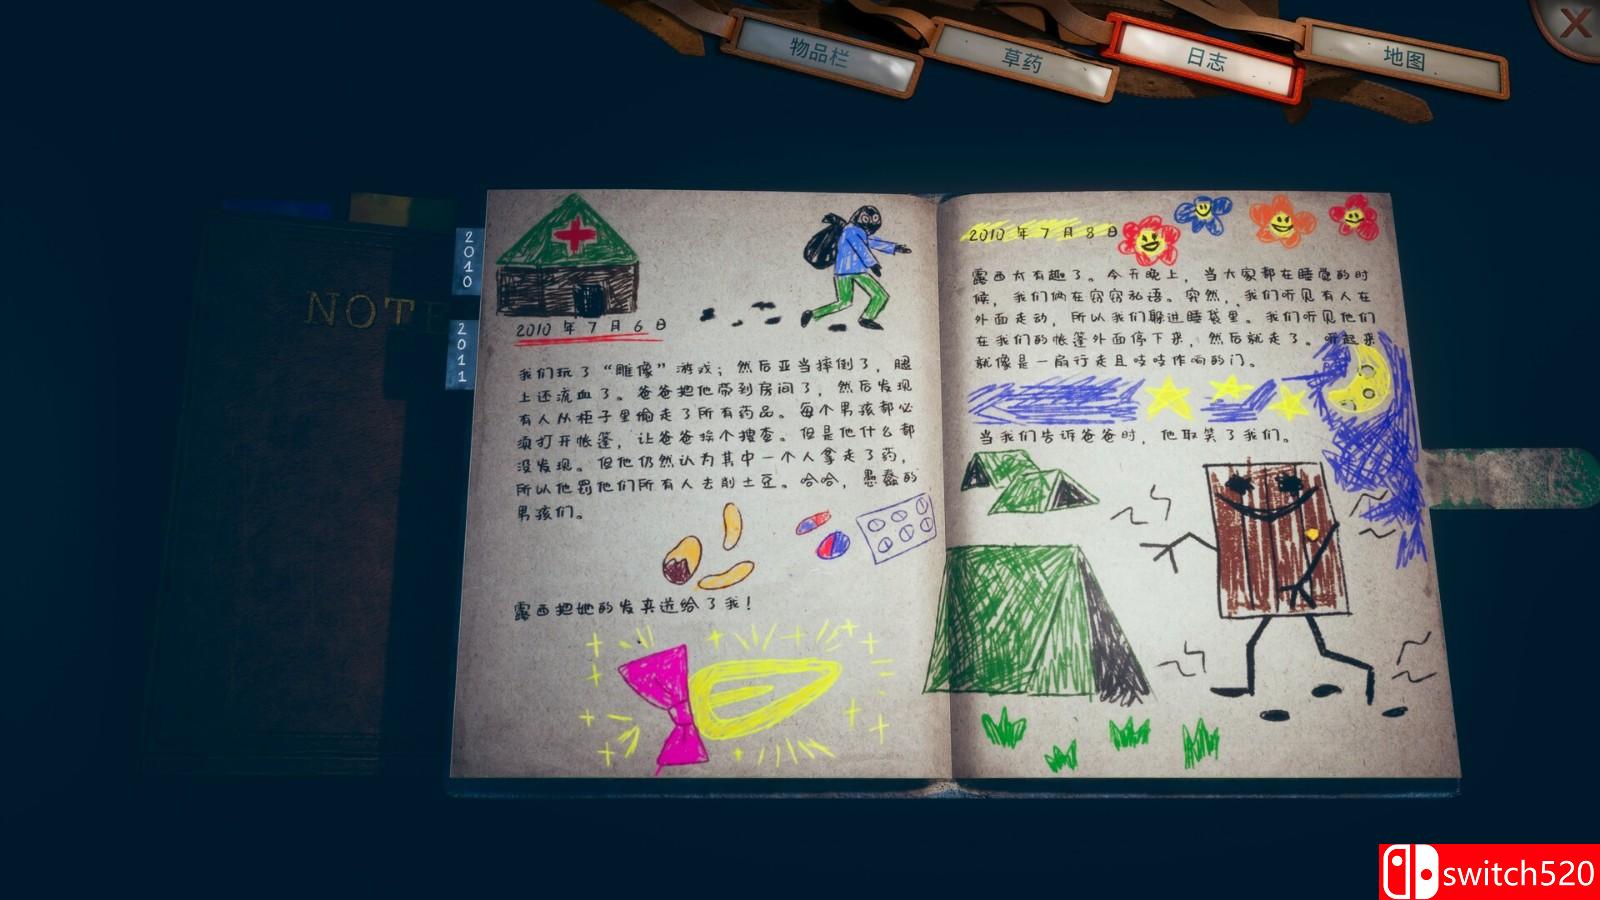 物品栏
草药
日志
地图
NOTE
2010
2011
2010 年 7 月 6 日
我们玩了“雕像”游戏；然后亚当摔倒了，腿
上还流血了。爸爸把他带到房间了，然后发现
有人从柜子里偷走了所有药品。每个男孩都必
须打开帐篷，让爸爸挨个搜查。但是他什么都
没发现。但他仍然认为其中一个人拿走了药，
所以他罚他们所有人去削土豆。哈哈，愚蠢的
男孩们。
露西把她的发夹送给了我！
2010 年 7 月 8 日
露西太有趣了。今天晚上，当大家都在睡觉的时
候，我们俩在窃窃私语。突然，我们听见有人在
外面走动，所以我们躲进睡袋里。我们听见他们
在我们的帐篷外面停下来，然后就走了。听起来
就像是一扇行走且吱吱作响的门。
当我们告诉爸爸时，他取笑了我们。
switch520